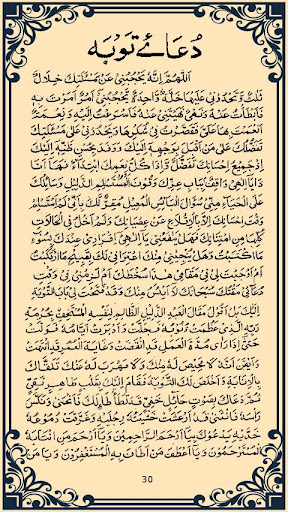 دُعَائے تَوْبَہ
اَللّٰهُمَّ اِنَّهُ يَحْجُبُنِيْ عَنْ مَسْئَلَتِكَ خِلَالٌ
ثَلٰثٌ وَتَحْدُوْنِيْ عَلَيْهَا خَلَّةٌ وَاحِدَةٌ يَحْجُبُنِيْ اَمْرٌ اَمَرْتَ بِهٖ
فَاَبْطَاْتُ عَنْهُ وَنَهْيٌ نَهَيْتَنِيْ عَنْهُ فَاَسْرَعْتُ اِلَيْهِ وَ نِعْمَةٌ
اَنْعَمْتَ بِهَا عَلَيَّ فَقَصَّرْتُ فِيْ شُكْرِهَا وَ يَحْدُوْنِيْ عَلٰى مَسْئَلَتِكَ
تَفَضُّلُكَ عَلٰى مَنْ اَقْبَلَ بِوَجْهِهٖ اِلَيْكَ وَ وَفَدَ بِحُسْنِ ظَنِّهٖ اِلَيْكَ
اِذْ جَمِيْعُ اِحْسَانِكَ تَفَضُّلٌ وَ اِذْ كُلُّ نِعَمِكَ ابْتِدَاۤءٌ فَهَا اَنَا
ذَا يَا اِلٰهِيْ وَاقِفٌ بِبَابِ عِزِّكَ وُقُوْفَ الْمُسْتَسْلِمِ الذَّلِيْلِ وَسَاۤئِلُكَ
عَلَى الْحَيَاۤءِ مِنِّيْ سُؤَالَ الْبَاۤئِسِ الْمُعِيْلِ مُقِرٌّ لَكَ بِاَنِّيْ لَمْ اَسْتَسْلِمْ
وَقْتَ اِحْسَانِكَ اِلَّا بِالْاِقْلَاعِ عَنْ عِصْيَانِكَ وَ لَمْ اَخْلُ فِي الْحَالَاتِ
كُلِّهَا مِنِ امْتِنَانِكَ فَهَلْ يَنْفَعُنِيْ يَا اِلٰهِيْ اِقْرَارِيْ عِنْدَكَ بِسُوْۤءِ
مَا اكْتَسَبْتُ وَهَلْ يُنْجِيْنِيْ مِنْكَ اعْتِرَافِيْ لَكَ بِقَبِيْحِ مَا ارْتَكَبْتُ
اَمْ اَوْجَبْتَ لِيْ فِيْ مَقَامِيْ هٰذَا سُخْطَكَ اَمْ لَزِمَنِيْ فِيْ وَقْتِ
دُعَاۤئِيْ مَقْتُكَ سُبْحَانَكَ لَا اَيْئَسُ مِنْكَ وَقَدْ فَتَحْتَ لِيْ بَابَ التَّوْبَةِ
اِلَيْكَ بَلْ اَقُوْلُ مَقَالَ الْعَبْدِ الذَّلِيْلِ الظَّالِمِ لِنَفْسِهِ الْمُسْتَخِفِّ بِحُرْمَةِ
رَبِّهِ الَّذِيْ عَظُمَتْ ذُنُوْبُهُ فَجَلَّتْ وَ اَدْبَرَتْ اَيَّامُهُ فَوَلَّتْ
حَتّٰى اِذَا رَاٰى مُدَّةَ الْعَمَلِ قَدِ انْقَضَتْ وَغَايَةَ الْعُمُرِ قَدِ انْتَهَتْ
وَ اَيْقَنَ اَنَّهُ لَا مَحِيْصَ لَهُ مِنْكَ وَ لَا مَهْرَبَ لَهُ عَنْكَ تَلَقَّاكَ
بِالْاِنَابَةِ وَ اَخْلَصَ لَكَ التَّوْبَةَ فَقَامَ اِلَيْكَ بِقَلْبٍ طَاهِرٍ نَقِيٍّ
ثُمَّ دَعَاكَ بِصَوْتٍ حَاۤئِلٍ خَفِيٍّ قَدْ تَطَاْطَاَ لَكَ فَانْحَنٰى وَ نَكَّسَ
رَاْسَهُ فَانْثَنٰى قَدْ اَرْعَشَتْ خَشْيَتُهُ رِجْلَيْهِ وَ غَرَّقَتْ دُمُوْعُهُ
خَدَّيْهِ يَدْعُوْكَ بِيَاۤ اَرْحَمَ الرَّاحِمِيْنَ وَ يَاۤ اَرْحَمَ مَنِ انْتَابَهُ
الْمُسْتَرْحِمُوْنَ وَ يَاۤ اَعْطَفَ مَنْ اَطَافَ بِهِ الْمُسْتَغْفِرُوْنَ وَ يَا مَنْ
30